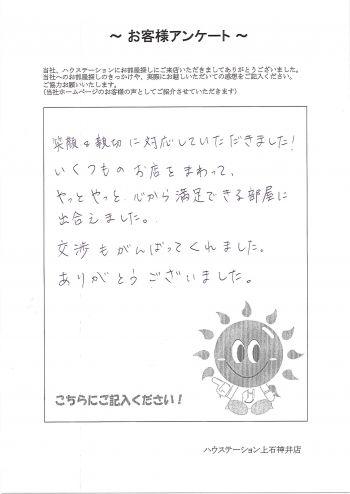 ～ お客様アンケート ～
当社、ハウステーションにお部屋探しにご来店いただきましてありがとうございました。
当社へのお部屋探しのきっかけや、実際にお越しいただいての感想をご記入ください。
ご協力お願いいたします。
(当社ホームページのお客様の声としてご紹介させていただきます)
笑顔&親切に対応していただきました!
いくつものお店をまわって、
やっとやっと心から満足できる部屋に
出合えました。
交渉もがんばってくれました。
ありがとうございました。
こちらにご記入ください!
ハウステーション上石神井店